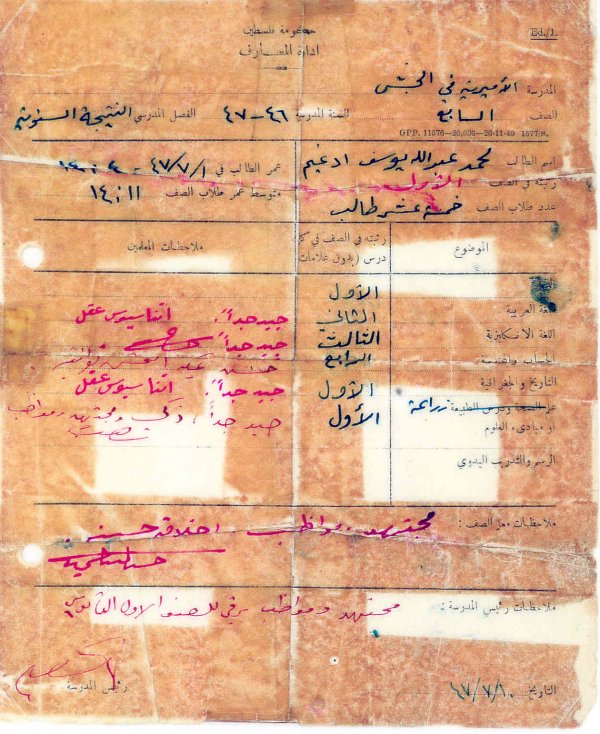 حكومة فلسطين
Ed./1.
ادارة المعارف
المدرسة الأميرية في الجش
الصف السابع السنة المدرسية ٤٦-٤٧ الفصل المدرسي النتيجة السنوية
GPP. 11576—20,000—20-11-40 1577/S.
اسم الطالب محمد عبدالله يوسف ادغيم عمر الطالب في ٤٧/٧/١
رتبته في الصف الأول متوسط عمر طلاب الصف ١٤:١١
عدد طلاب الصف خمسة عشر طالب
الموضوع رتبته في الصف في كل درس (بدون علامات) ملاحظات المعلمين
الأول
اللغة العربية الثاني جيد جداً.
اللغة الانكليزية الثالث جيد جداً
الحساب والهندسة الرابع
التاريخ والجغرافية الأول جيد جداً.
علم الصحة ودروس الطبيعة زراعة الأول جيد جداً، ذكي ومجتهد ومواظب
او مبادىء العلوم
الرسم والتدريب اليدوي
ملاحظات معلم الصف : مجتهد. مواظب اخلاقه حسنة.
ملاحظات رئيس المدرسة : مجتهد ومواظب يرقى للصف الاول الثانوي
التاريخ ٤٧/٧/١٠ رئيس المدرسة